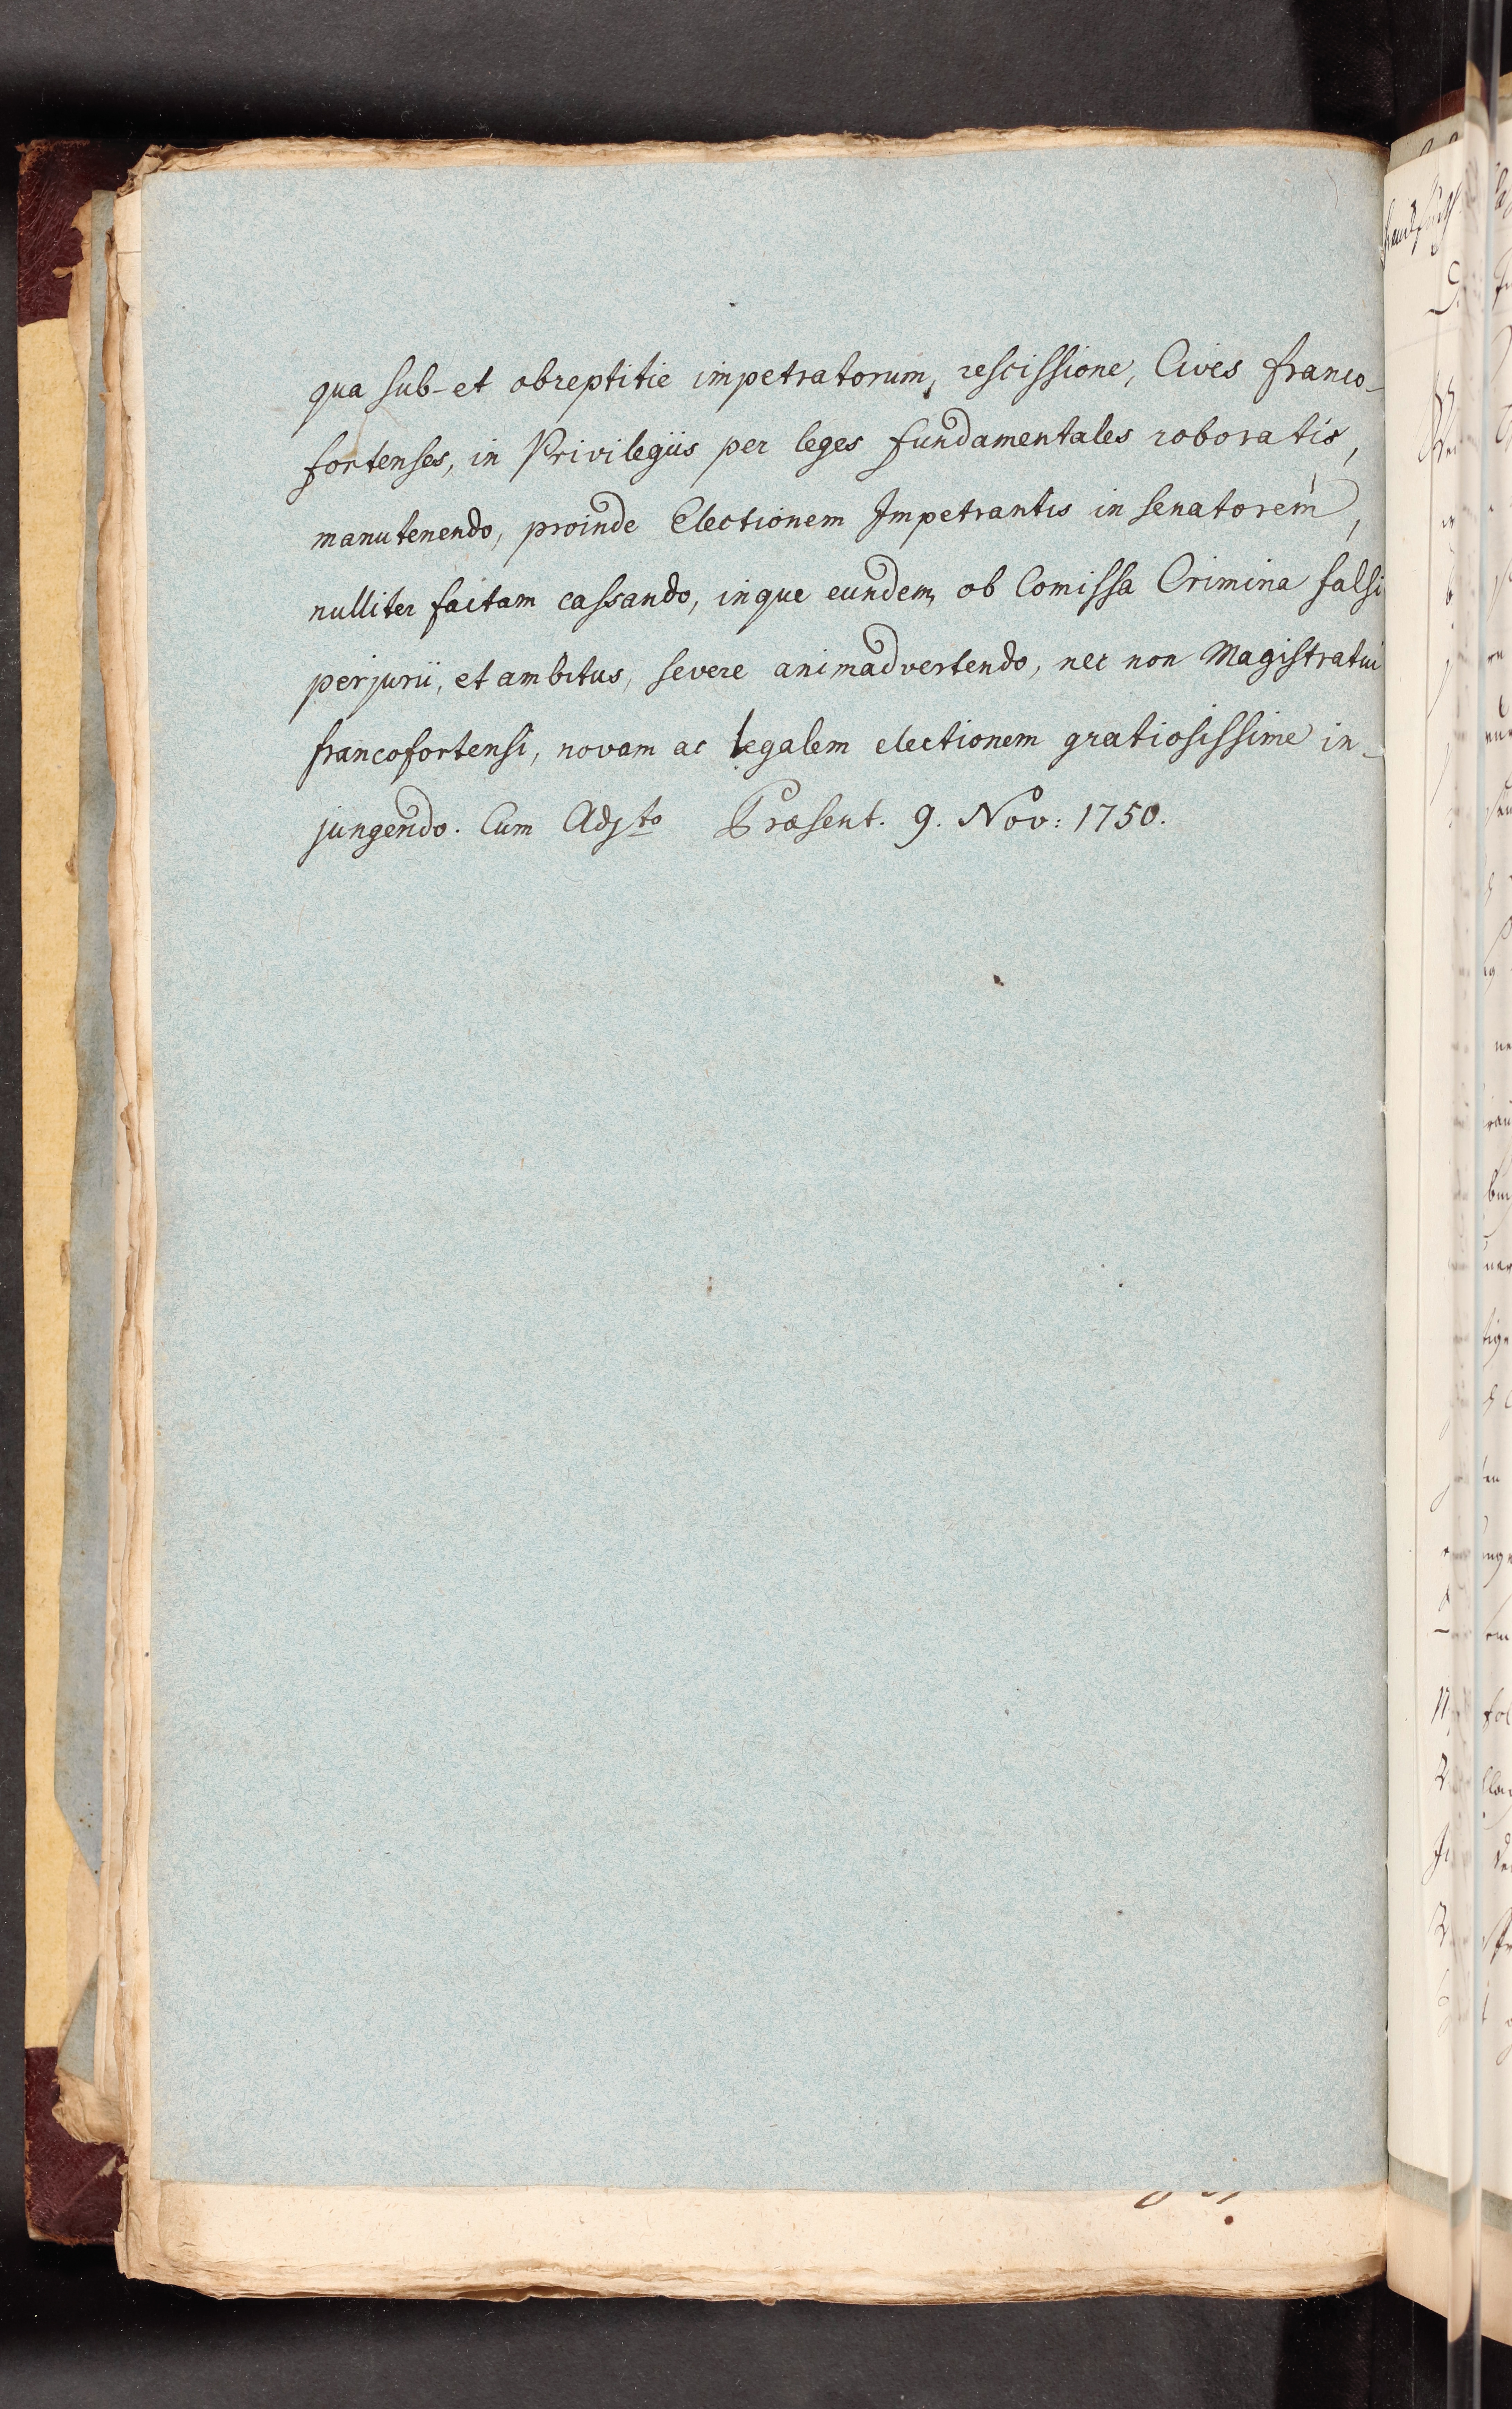 qua sub- et obreptitie impetratorum, rescissione, Cives franco-
fortenses, in Privilegiis per leges fundamentales roboratis,
manutenendo, proinde Electionem Impetrantis in senatorem,
nulliter factam cassando, inque eundem, ob Comissa Crimina falsi
perjurii, et ambitus, severe animadvertendo, nec non Magistratui
francofortensi, novam ac legalem electionem gratiosissime in-
jungendo. Cum Adjto Præsent. 9. Nov: 1750.